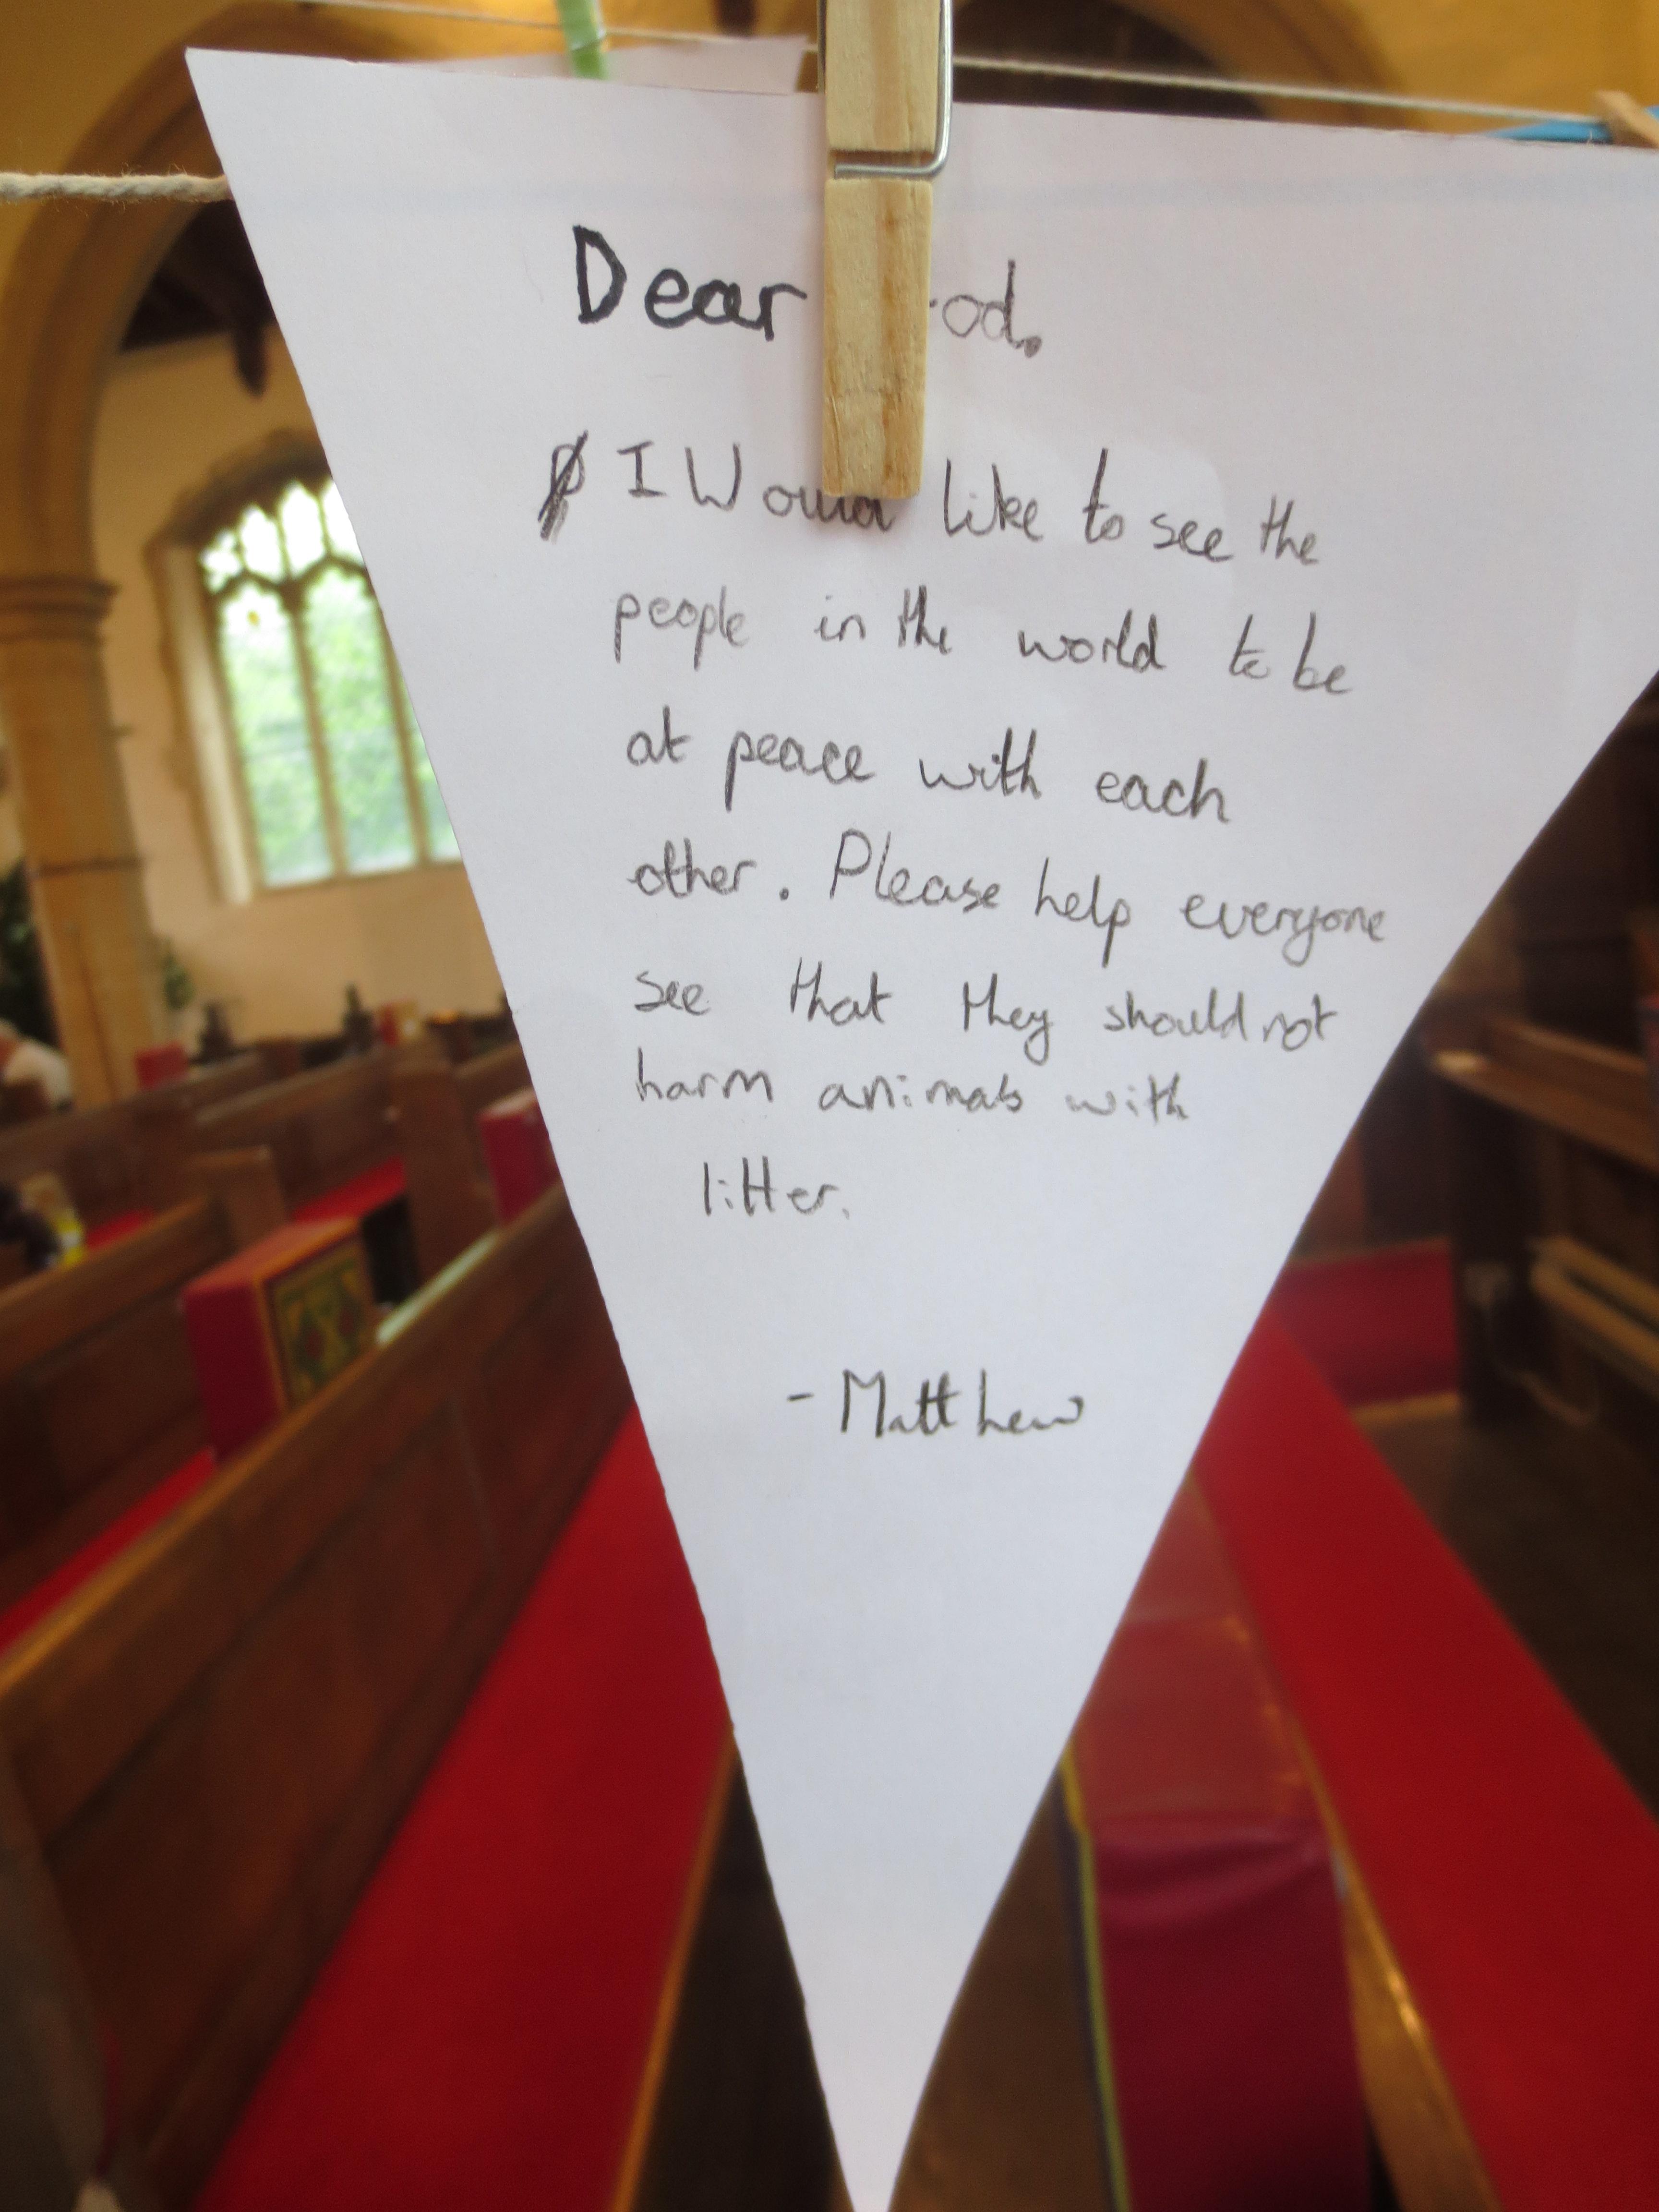 Dear God.
I Would like to see the
people in the world to be
at peace with each
other. Please help everyone
see that they should not
harm animals with
litter.
- Matthew